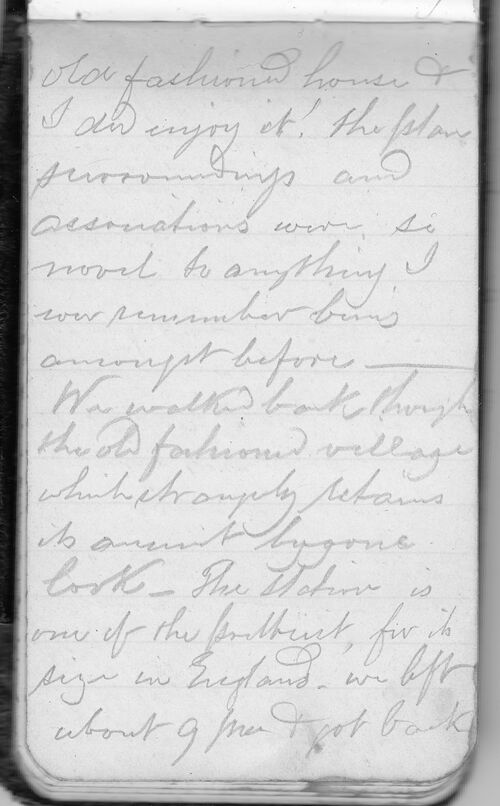 old fashioned house &
I did enjoy it! the place
surroundings and
associations were so
novel to anything I
ever remember being
amongst before —
We walked back through
the old fashioned village
which strangely retains
its ancient bygone
look — The station is
one of the prettiest, for its
size in England – we left
about 9 pm & got back